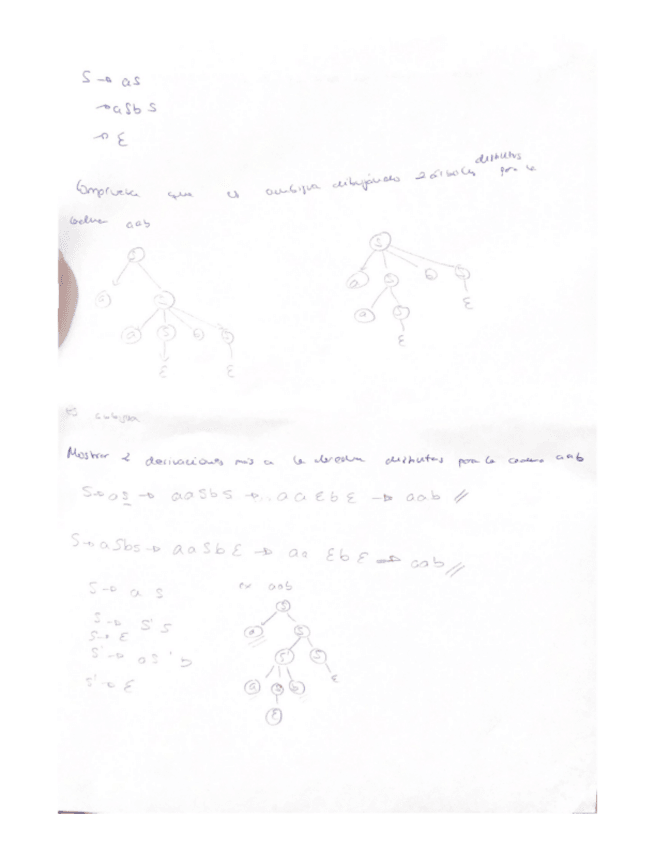 S → aS
→ aSb S
→ ε
Compruebe que es ambigua dibujando 2 árboles distintos por la
cadena aab
S
S
a S b S
ε ε
S
a S b S
a S ε
ε
ambigua
Mostrar 2 derivaciones mas a la derecha distintas para la cadena aab
S → aS → aaSbS → aaεbε → aab //
S → aSbS → aaSbε → aa εbε → aab //
S → a S
ex aab
S → S' S
S → ε
S' → aS' b
S' → ε
S
a S
S' S
a b ε
ε